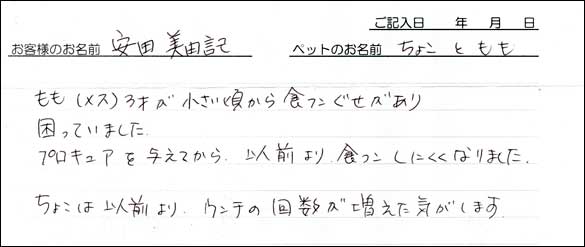 ご記入日 年 月 日
お客様のお名前 安田 美由記 ペットのお名前 ちょこ と もも
もも(メス)3才が 小さい頃から 食フンぐせがあり
困っていました.
プロキュアを与えてから. 以前より. 食フン しにくくなりました.
ちょこは 以前より. ウンチの回数が増えた気がします.